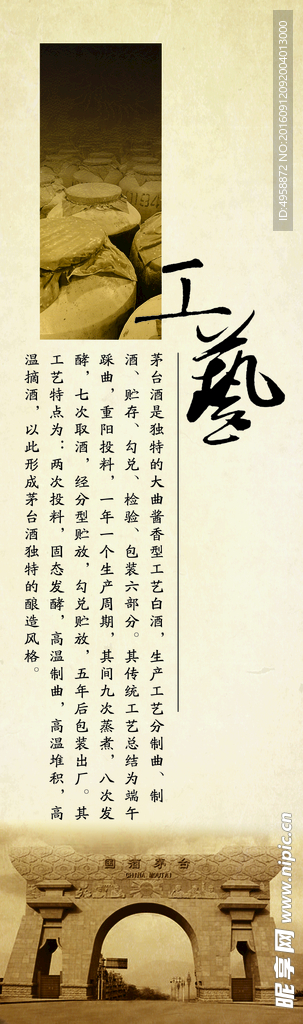 工藝
茅台酒是独特的大曲酱香型工艺白酒，生产工艺分制曲、制
酒、贮存、勾兑、检验、包装六部分。其传统工艺总结为端午
踩曲，重阳投料，一年一个生产周期，其间九次蒸煮，八次发
酵，七次取酒，经分型贮放，勾兑贮放，五年后包装出厂。其
工艺特点为：两次投料，固态发酵，高温制曲，高温堆积，高
温摘酒，以此形成茅台酒独特的酿造风格。
國酒茅台
CHINA MOUTAI
ID:4958872 NO:20160912092004013000
昵享网 www.nipic.cn